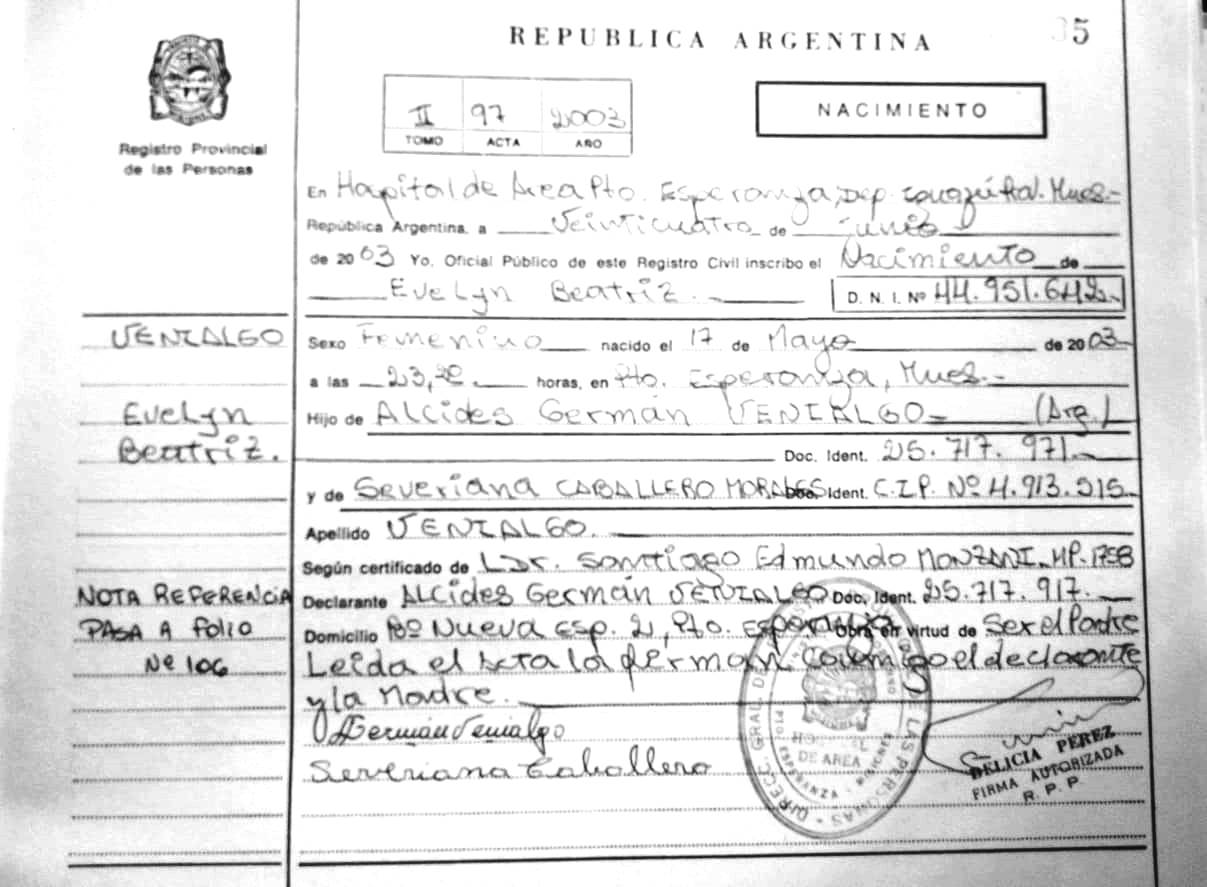 35
REPUBLICA ARGENTINA
Registro Provincial
de las Personas
II 97 2003
TOMO ACTA AÑO
NACIMIENTO
En Hospital de Area Pto. Esperanza, Dep.
República Argentina, a Veinticuatro de junio
de 2003 Yo, Oficial Público de este Registro Civil inscribo el Nacimiento de
Evelyn Beatriz. D. N. I. Nº 44.951.642
VENIALGO
Evelyn
Beatriz.
Sexo Femenino nacido el 17 de Mayo de 2003
a las 23, horas, en Pto. Esperanza,
Hijo de Alcides Germán VENIALGO (Arg.)
Doc. Ident. 25.717.971
y de Severiana CABALLERO MORALES Doc. Ident. C.I.P. Nº 4.913.515
Apellido VENIALGO.
Según certificado de Dr. Santiago Edmundo MONZANI. MP. 1758
NOTA REFERENCIA
PASA A folio
Nº 106
Declarante Alcides Germán VENIALGO Doc. Ident. 25.717.917.
Domicilio Bº Nueva Esp. 2, Pto. Esperanza Obra en virtud de Ser el Padre
Leída el Acta la firman conmigo el declarante
y la Madre.
Germán Venialgo
Severiana Caballero
DIRECC. GRAL. DE LAS PERSONAS
HOSPITAL
DE AREA
ESPERANZA - MISIONES
DELICIA PEREZ
FIRMA AUTORIZADA
R. P. P.